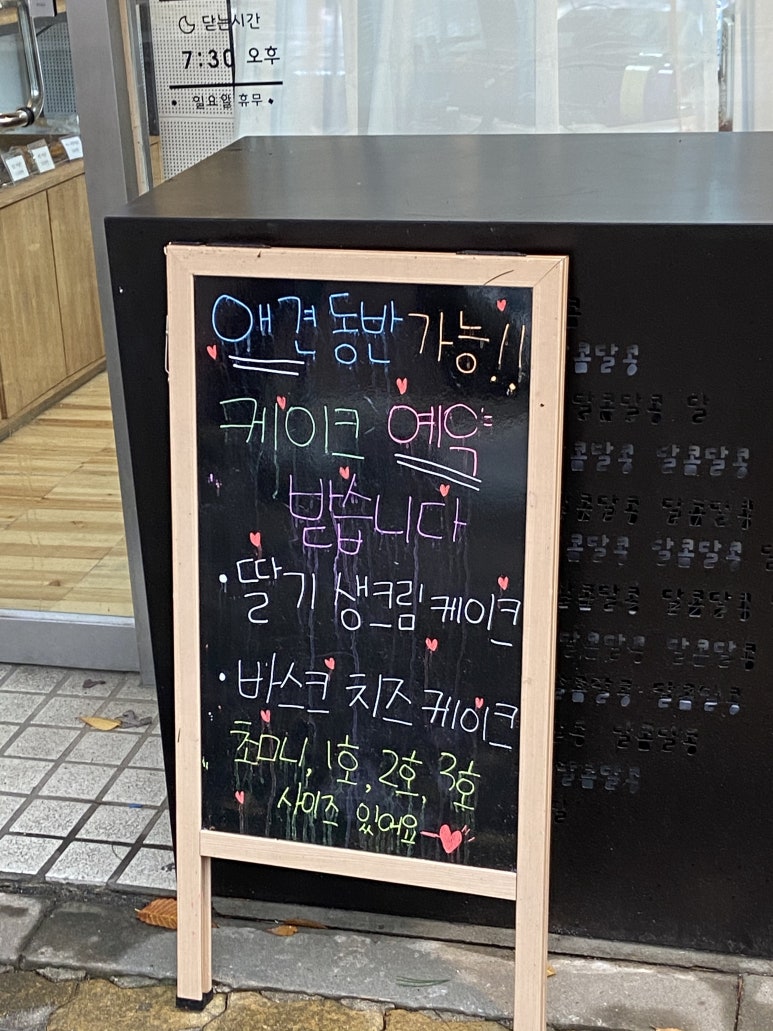 닫는시간
7:30 오후
• 일요일 휴무 •
애견동반 가능!!
케이크 예약
받습니다
· 딸기 생크림 케이크
· 바스크 치즈 케이크
초미니, 1호, 2호, 3호
사이즈 있어요
콤
달콤달콩
달콤달콩 달
달콤달콩 달콤달콩
달콤달콩 달콤달콩
달콤달콩 달콤달콩
달콤달콩 달콤달콩
달콤달콩 달콤달콩
달콤달콩 달콤달콩
달콤달콩
달콤달콩
달